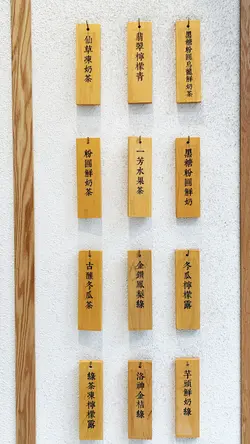 仙草凍奶茶
翡翠檸檬青
黑糖粉圓烏龍鮮奶茶
粉圓鮮奶茶
一芳水果茶
黑糖粉圓鮮奶
古釀冬瓜茶
金鑽鳳梨綠
冬瓜檸檬露
綠茶凍檸檬露
洛神金桔綠
芋頭鮮奶綠